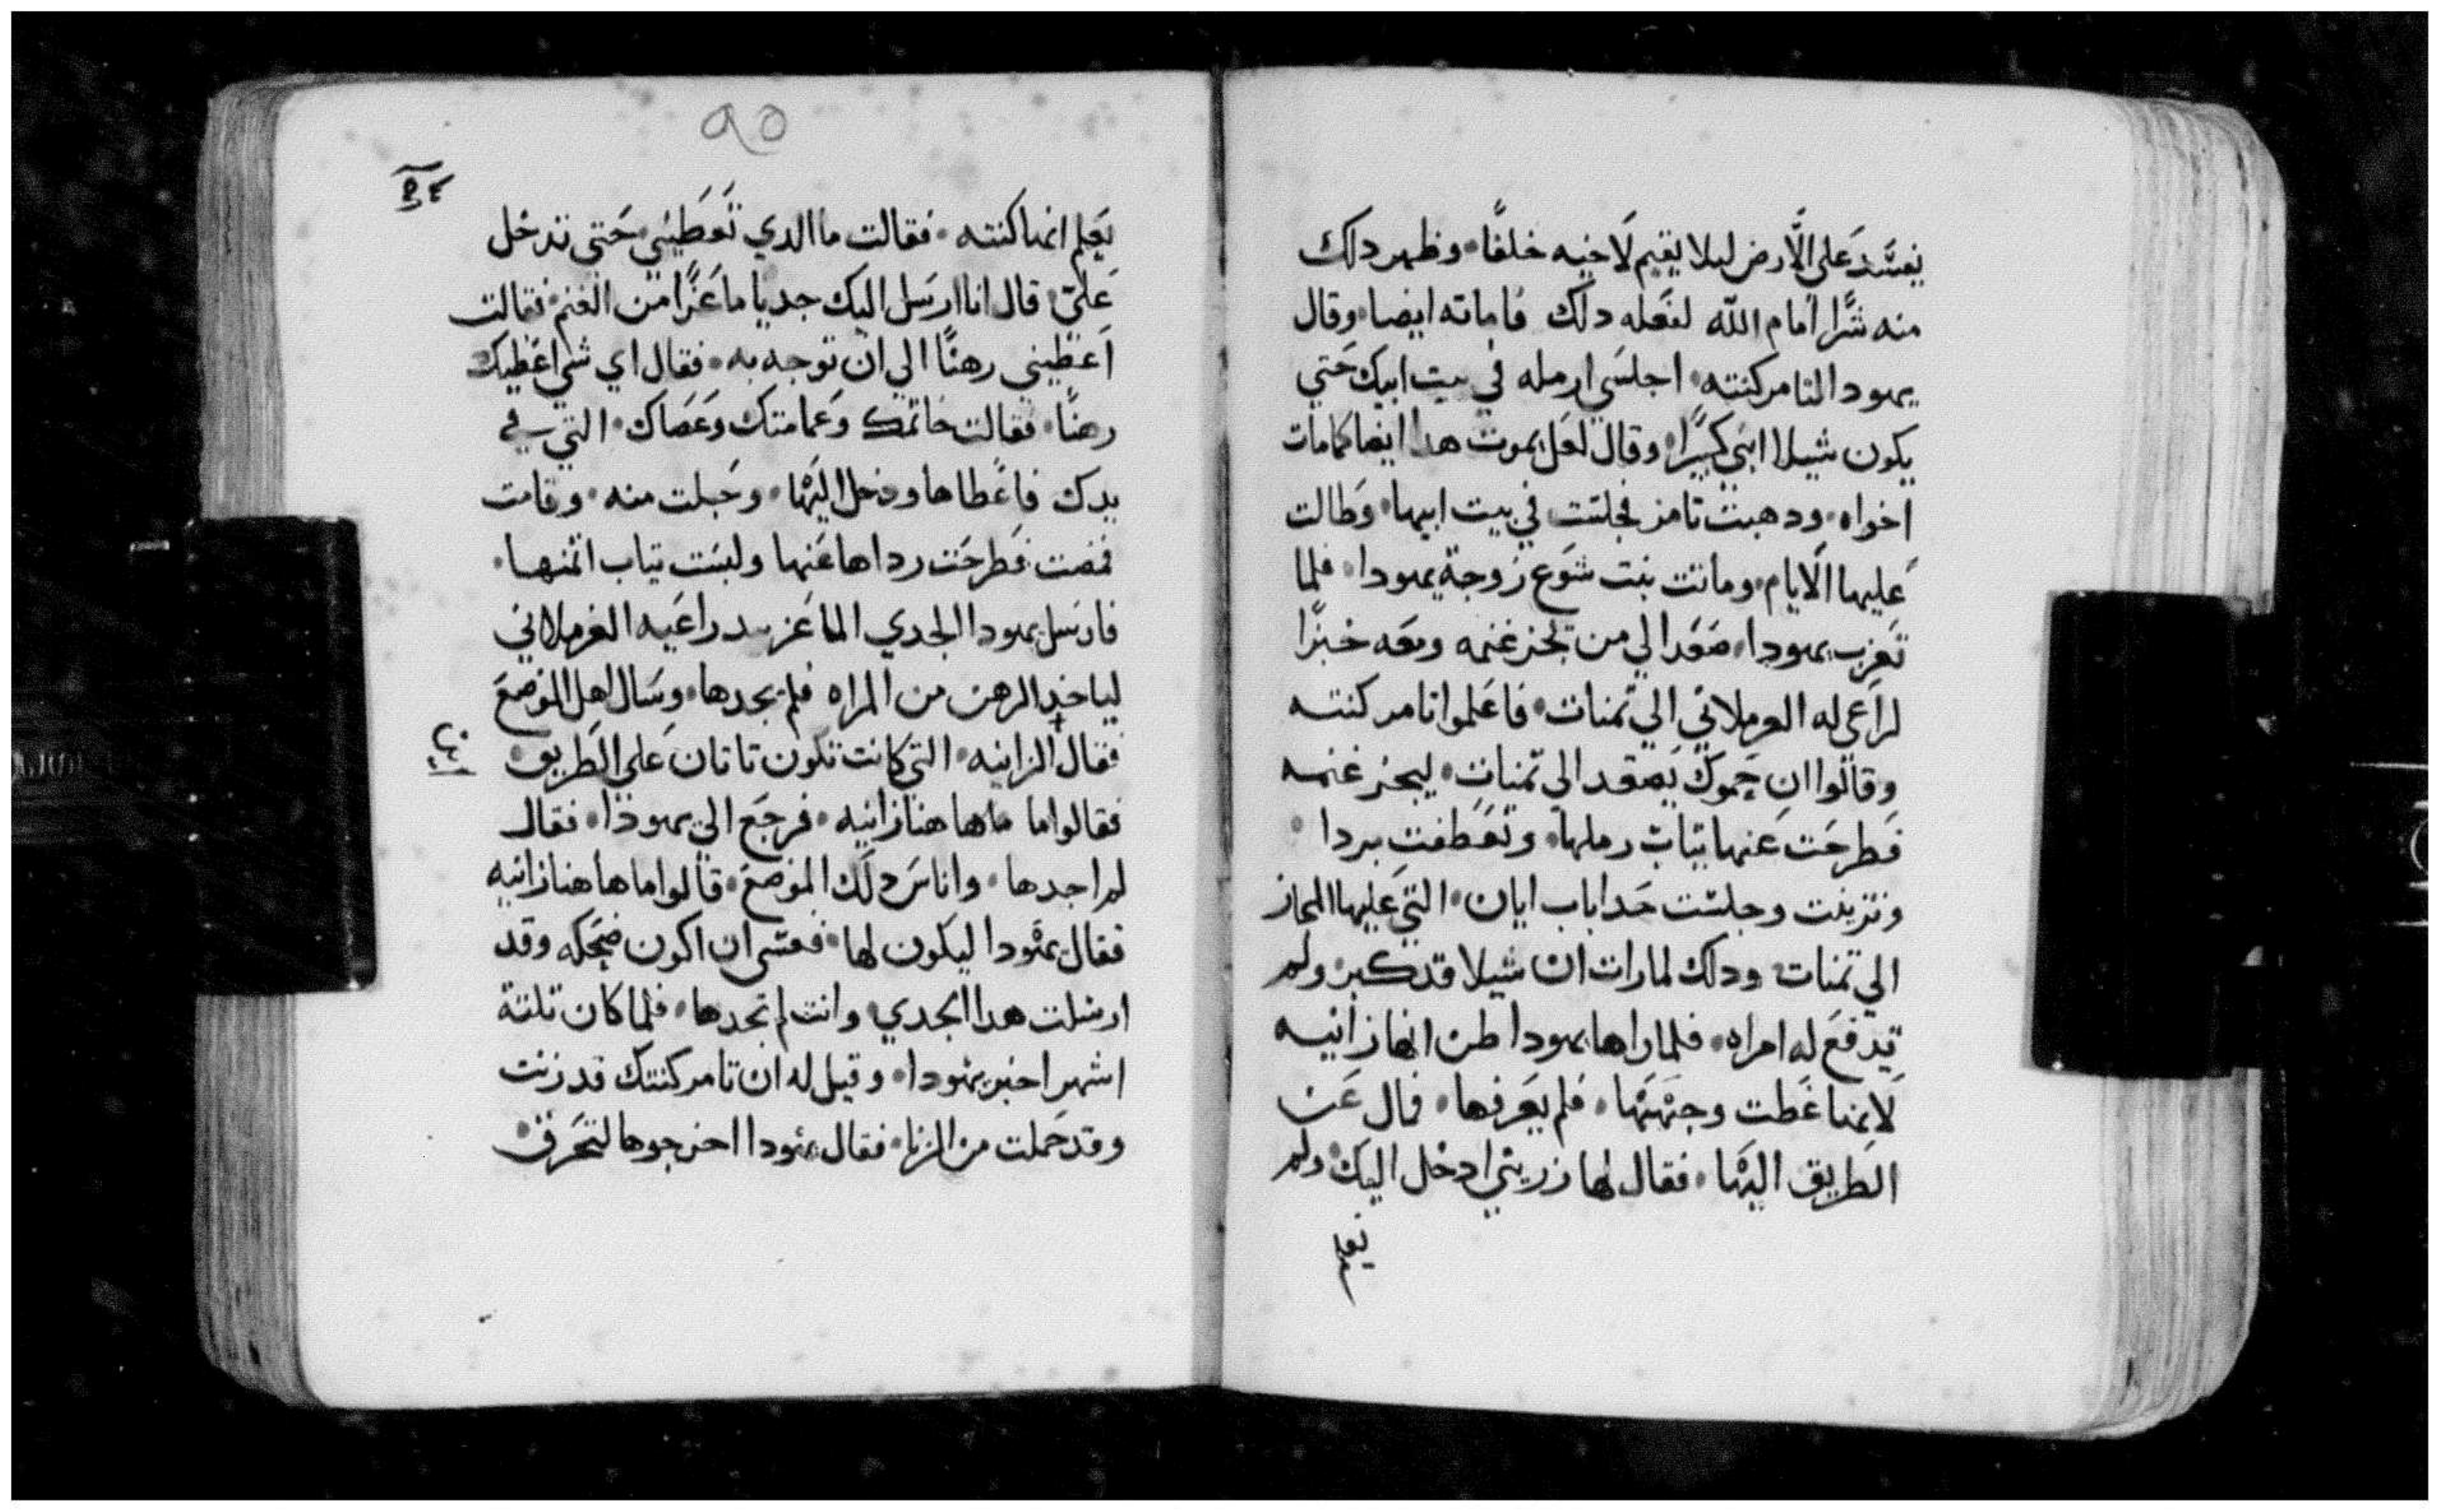 يفسد على الارض ليلا يقيم لاخيه خلفًا. وظهر دلك
منه شرًا امام الله لفعله دلك فاماته ايضا. وقال
يهودا لتامر كنته. اجلسي ارمله في بيت ابيك حتي
يكون شيلا ابني كبيرًا. وقال لعل يموت هدا ايضا كما مات
اخواه. ودهبت تامر فجلست في بيت ابيها. وطالت
عليها الايام. وماتت بنت شوع زوجة يهودا. فلما
تعزب يهودا. صعد الي من يجز غنمه ومعه خبزًا
لراعي له العرملاني الي تمنات. فاعلموا تامر كنته
وقالوا ان حموك يصعد الي تمنات. ليجز غنمه
فطرحت عنها تياب رملها. وتعطفت بردا.
وتزينت وجلست حدا باب ايان. التي عليها المجاز
الي تمنات. ودلك لما رات ان شيلا قد كبر. ولم
تدفع له امراه. فلما راها يهودا ظن انها زانيه
لانها غطت وجهها. فلم يعرفها. فمال عن
الطريق اليها. فقال لها دريني ادخل اليك. ولم
٩٥
يعلم انها كنته. فقالت ما الدي تعطيني. حتي تدخل
علي. قال انا ارسل اليك جديا ماعزًا من الغنم. فقالت
اعطيني رهنًا الي ان توجه به. فقال اي شي اعطيك
رهنًا. فقالت خاتمك وعمامتك وعصاك. التي في
يدك فاعطاها ودخل اليها. وحبلت منه. وقامت
فمضت فطرحت رداها عنها ولبست تياب اتمنها.
فارسل يهودا الجدي الماعز بيد راعيه العرملاني
لياخد الرهن من المراه فلم يجدها. وسال اهل الموضع
فقال الزانيه. التي كانت تكون تاتان على الطريق.
فقالوا ما ماها هنا زانيه. فرجع الي يهودا. فقال
لم اجدها. واناس دلك الموضع. قالوا ما هاهنا زانيه
فقال يهودا ليكون لها. فعسى ان اكون ضحكه وقد
ارسلت هدا الجدي. وانت لم تجدها. فلما كان تلتة
اشهر اخبر يهودا. وقيل له ان تامر كنتك قد زنت
وقد حملت من الزنا. فقال يهودا اخرجوها لتحرق.